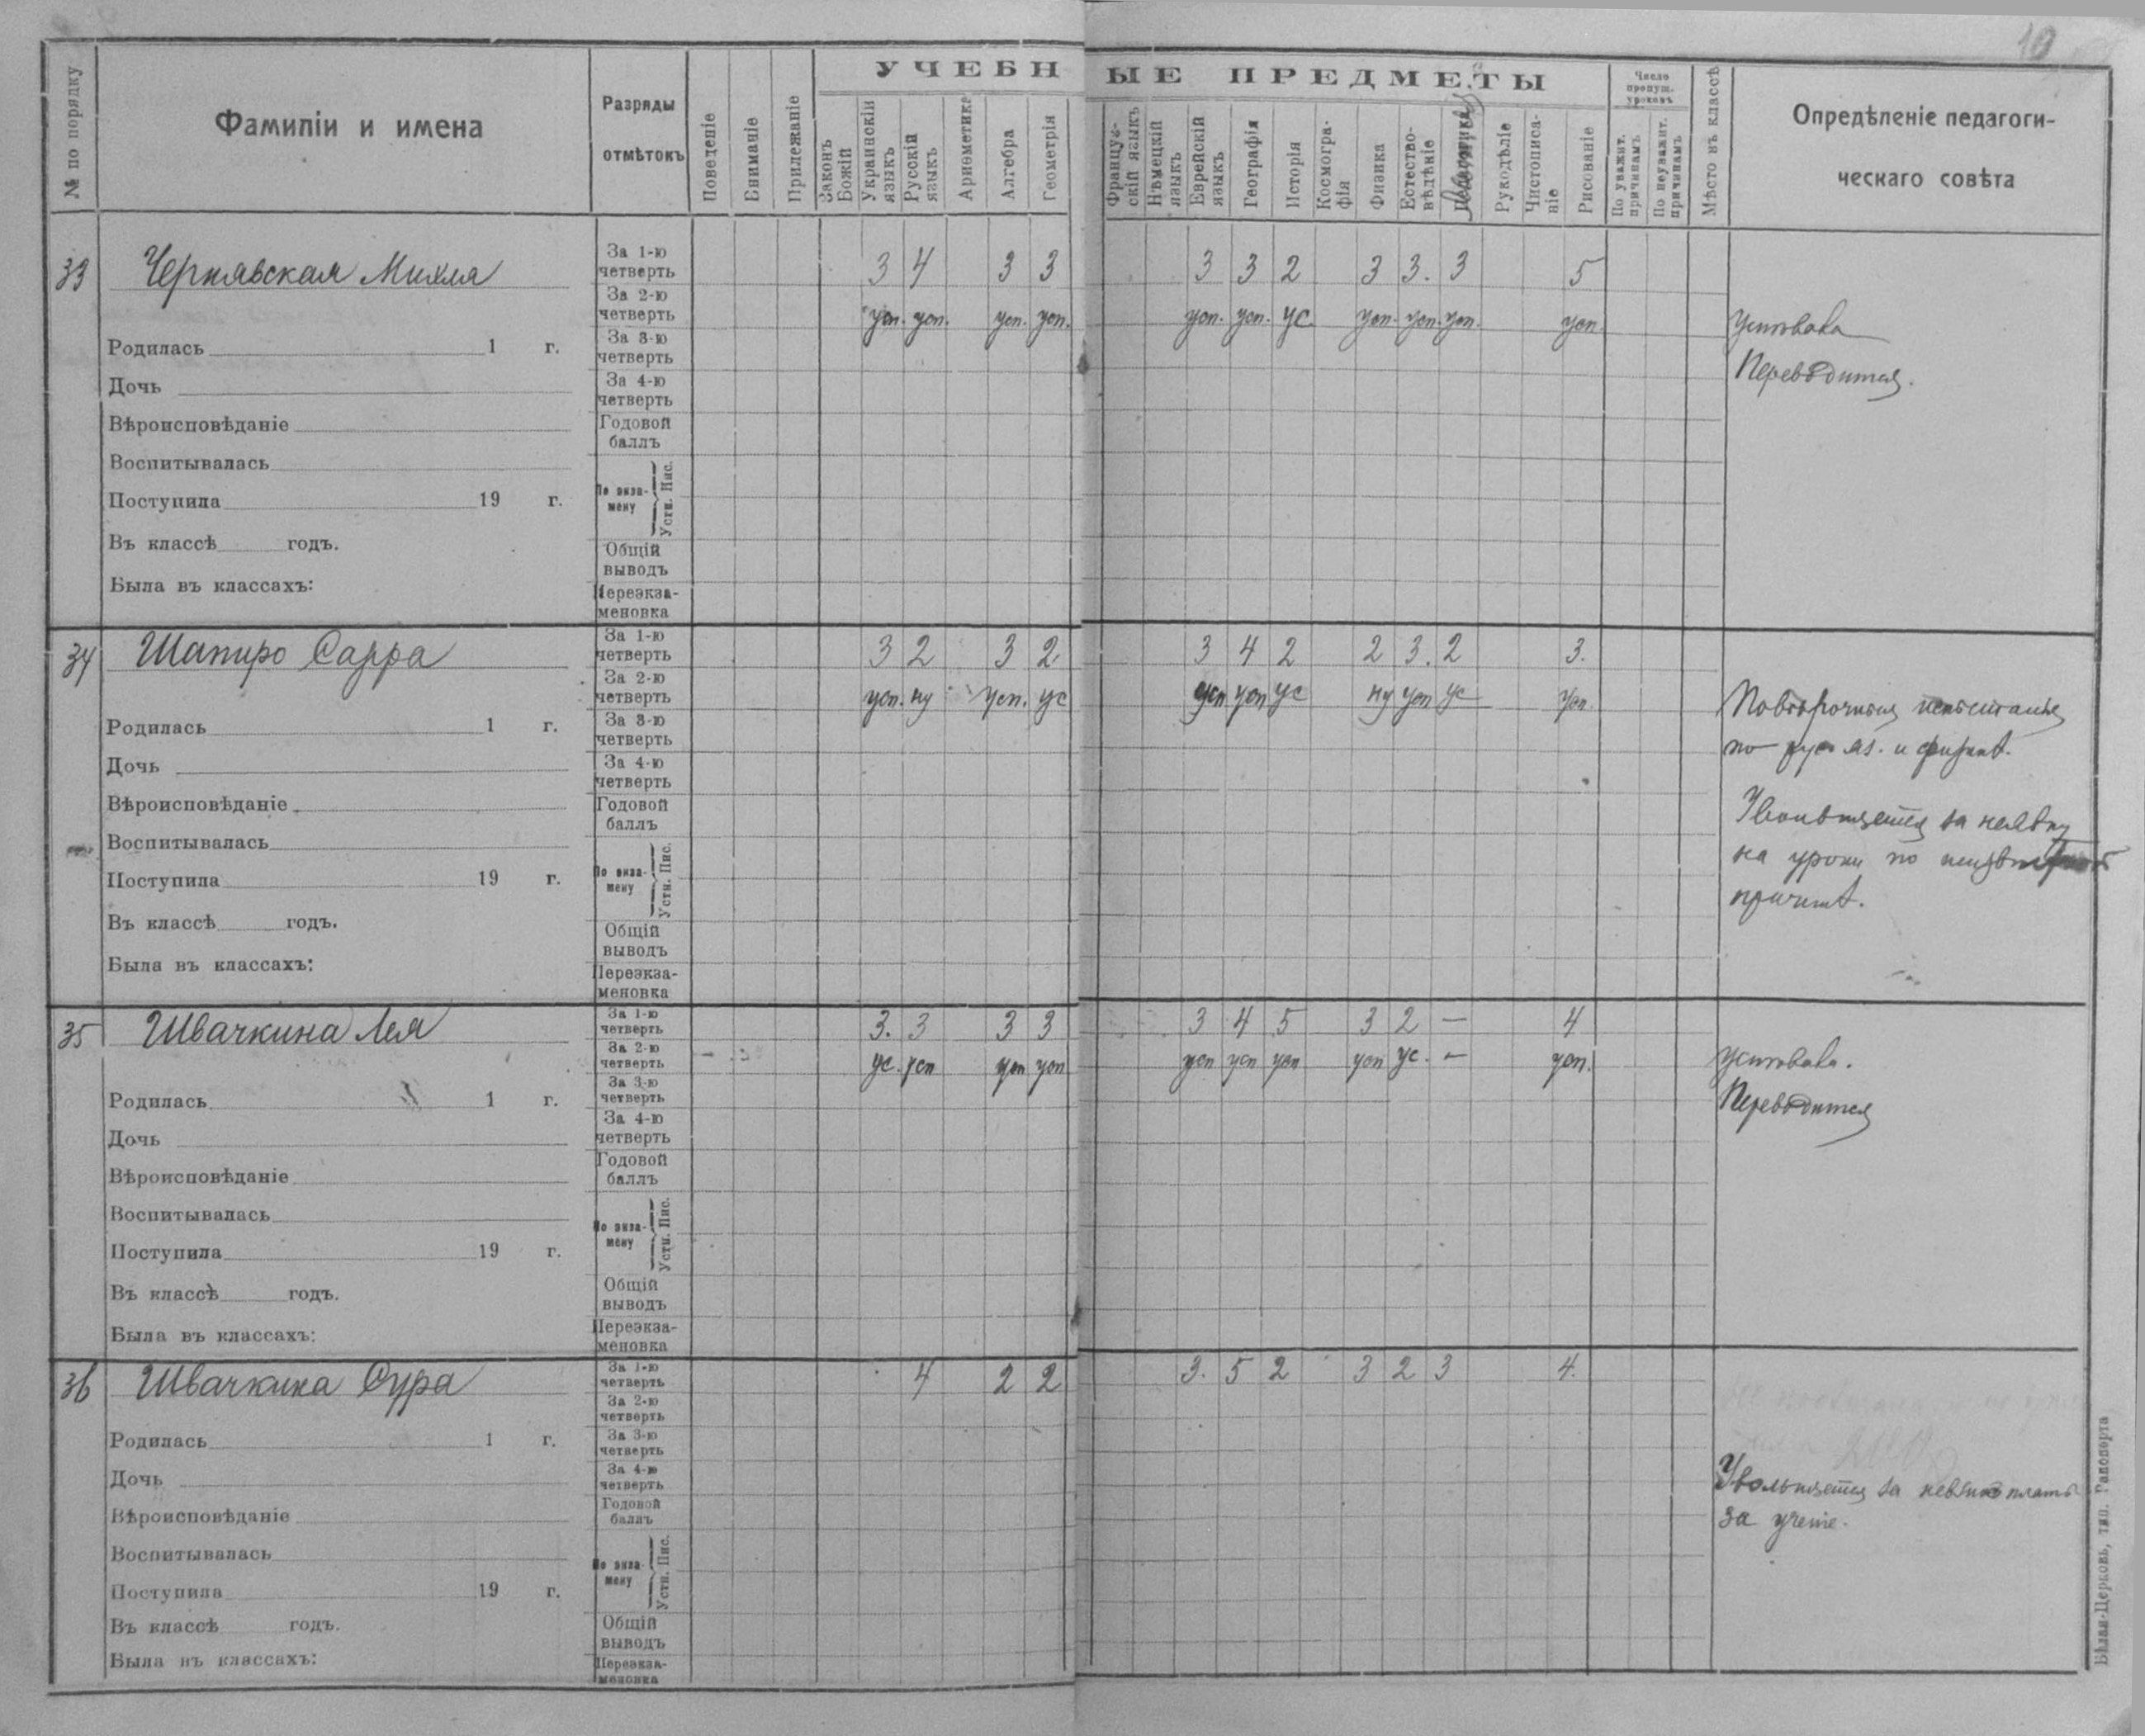 10
УЧЕБНЫЕ ПРЕДМЕТЫ
№ по порядку
Фамиліи и имена
Разряды отмѣтокъ
Поведеніе
Вниманіе
Прилежаніе
Законъ Божій
Украинскій языкъ
Русскій языкъ
Ариѳметика
Алгебра
Геометрія
Француз-скій языкъ
Нѣмецкій языкъ
Еврейскій языкъ
Географія
Исторія
Космогра-фія
Физика
Естество-вѣдѣніе
Рукодѣліе
Чистописа-ніе
Рисованіе
Число пропущ. уроковъ
По уважит. причинамъ
По неуважит. причинамъ
Мѣсто въ классѣ
Опредѣленіе педагоги-
ческаго совѣта
33 Чернявская Михля
За 1-ю четверть 3 4 3 3 3 3 2 3 3. 3 5
За 2-ю четверть усп. усп. усп. усп. усп. усп. ус. усп. усп. усп. усп.
Родилась 1 г.
За 3-ю четверть
Дочь
За 4-ю четверть
Вѣроисповѣданіе
Годовой баллъ
Воспитывалась
Поступила 19 г.
По экза-мену Устн. Пис.
Въ классѣ годъ.
Общій выводъ
Была въ классахъ:
Переэкза-меновка
Переводится.
34 Шапиро Сарра
За 1-ю четверть 3 2 3 2 3 4 2 2 3. 2 3.
За 2-ю четверть усп. ну усп. ус усп усп ус ну усп ус усп.
Родилась 1 г.
За 3-ю четверть
Дочь
За 4-ю четверть
Вѣроисповѣданіе
Годовой баллъ
Воспитывалась
Поступила 19 г.
По экза-мену Устн. Пис.
Въ классѣ годъ.
Общій выводъ
Была въ классахъ:
Переэкза-меновка
по рус. яз. и физикѣ.
Увольняется за неявку
на уроки по
причинѣ.
35 Швачкина Лея
За 1-ю четверть 3. 3 3 3 3 4 5 3 2 — 4
За 2-ю четверть ус. усп усп усп усп усп усп усп ус. — усп.
Родилась 1 г.
За 3-ю четверть
Дочь
За 4-ю четверть
Вѣроисповѣданіе
Годовой баллъ
Воспитывалась
Поступила 19 г.
По экза-мену Устн. Пис.
Въ классѣ годъ.
Общій выводъ
Была въ классахъ:
Переэкза-меновка
Переводится
36 Швачкина Сура
За 1-ю четверть 4 2 2 3. 5 2 3 2 3 4.
За 2-ю четверть
Родилась 1 г.
За 3-ю четверть
Дочь
За 4-ю четверть
Вѣроисповѣданіе
Годовой баллъ
Воспитывалась
Поступила 19 г.
По экза-мену Устн. Пис.
Въ классѣ годъ.
Общій выводъ
Была въ классахъ:
Переэкза-меновка
Увольняется за невзносъ платы
за ученіе.
Бѣлая-Церковь, тип. Рапопорта